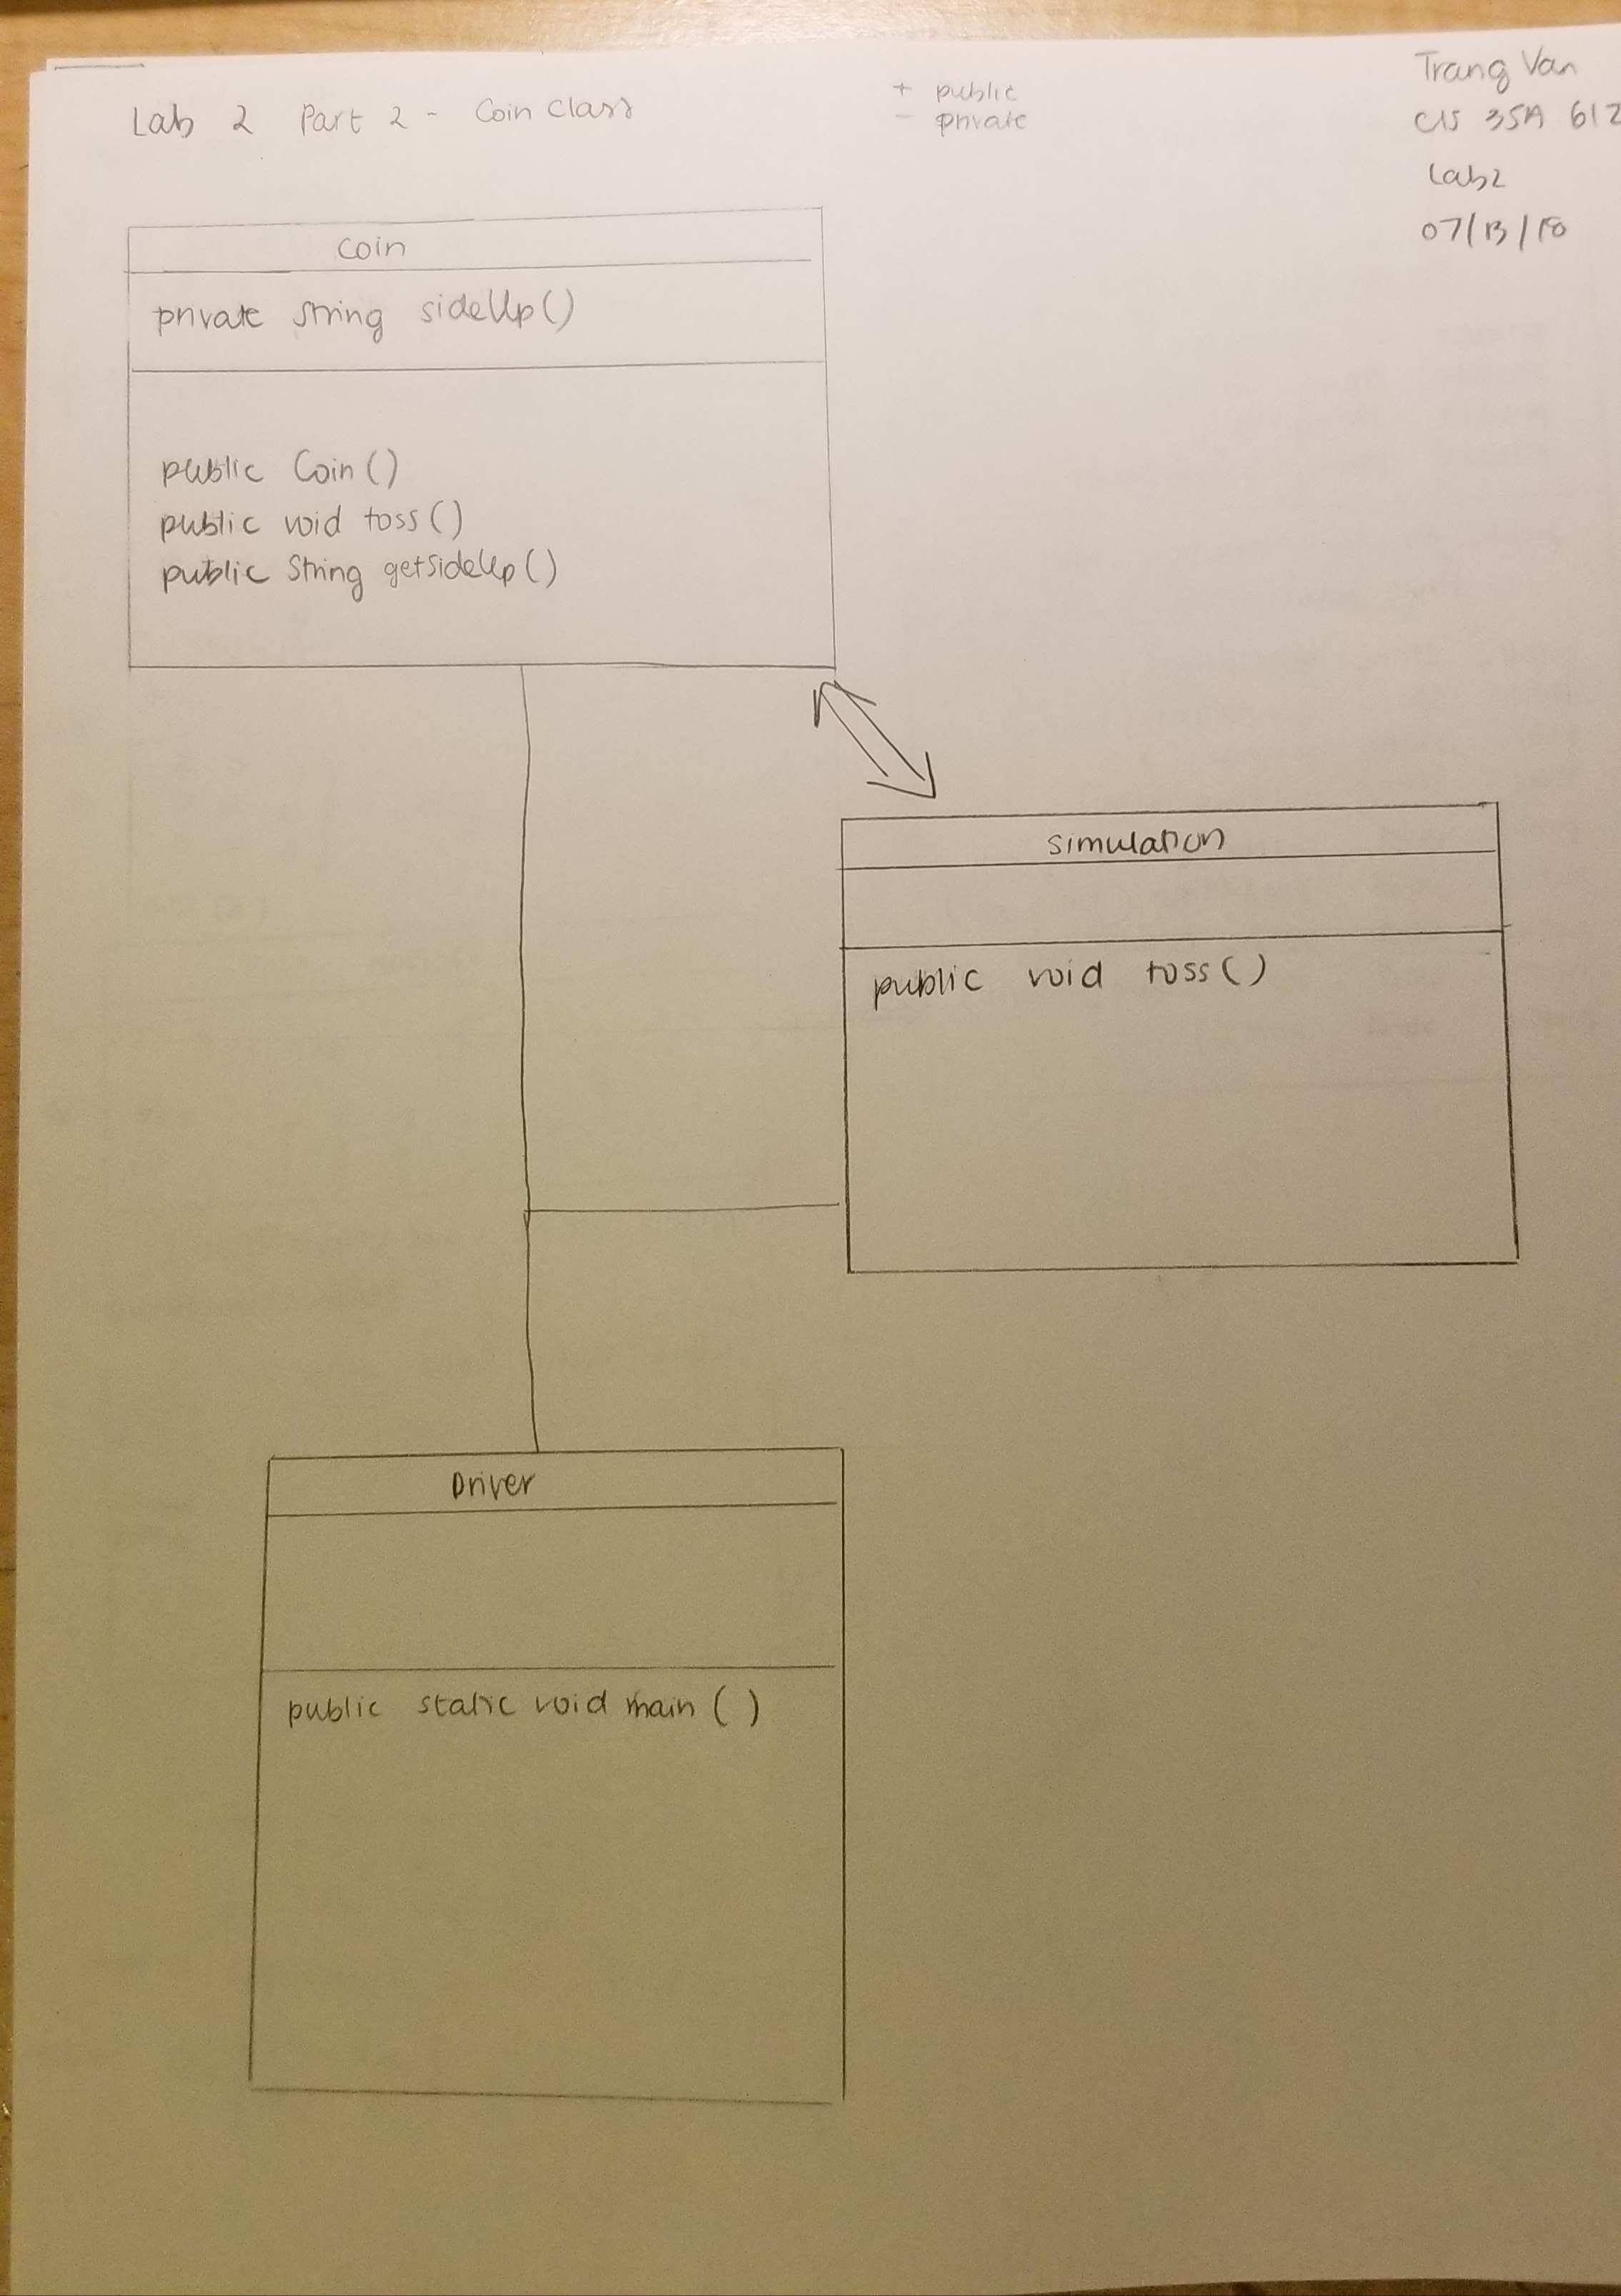 Lab 2 Part 2 - Coin Class
+ public
- private
Trang Van
CIS 35A 612
Lab2
07/13/18
Coin
private String sideUp()
public Coin()
public void toss()
public String getSideUp()
simulation
public void toss()
Driver
public static void main ( )